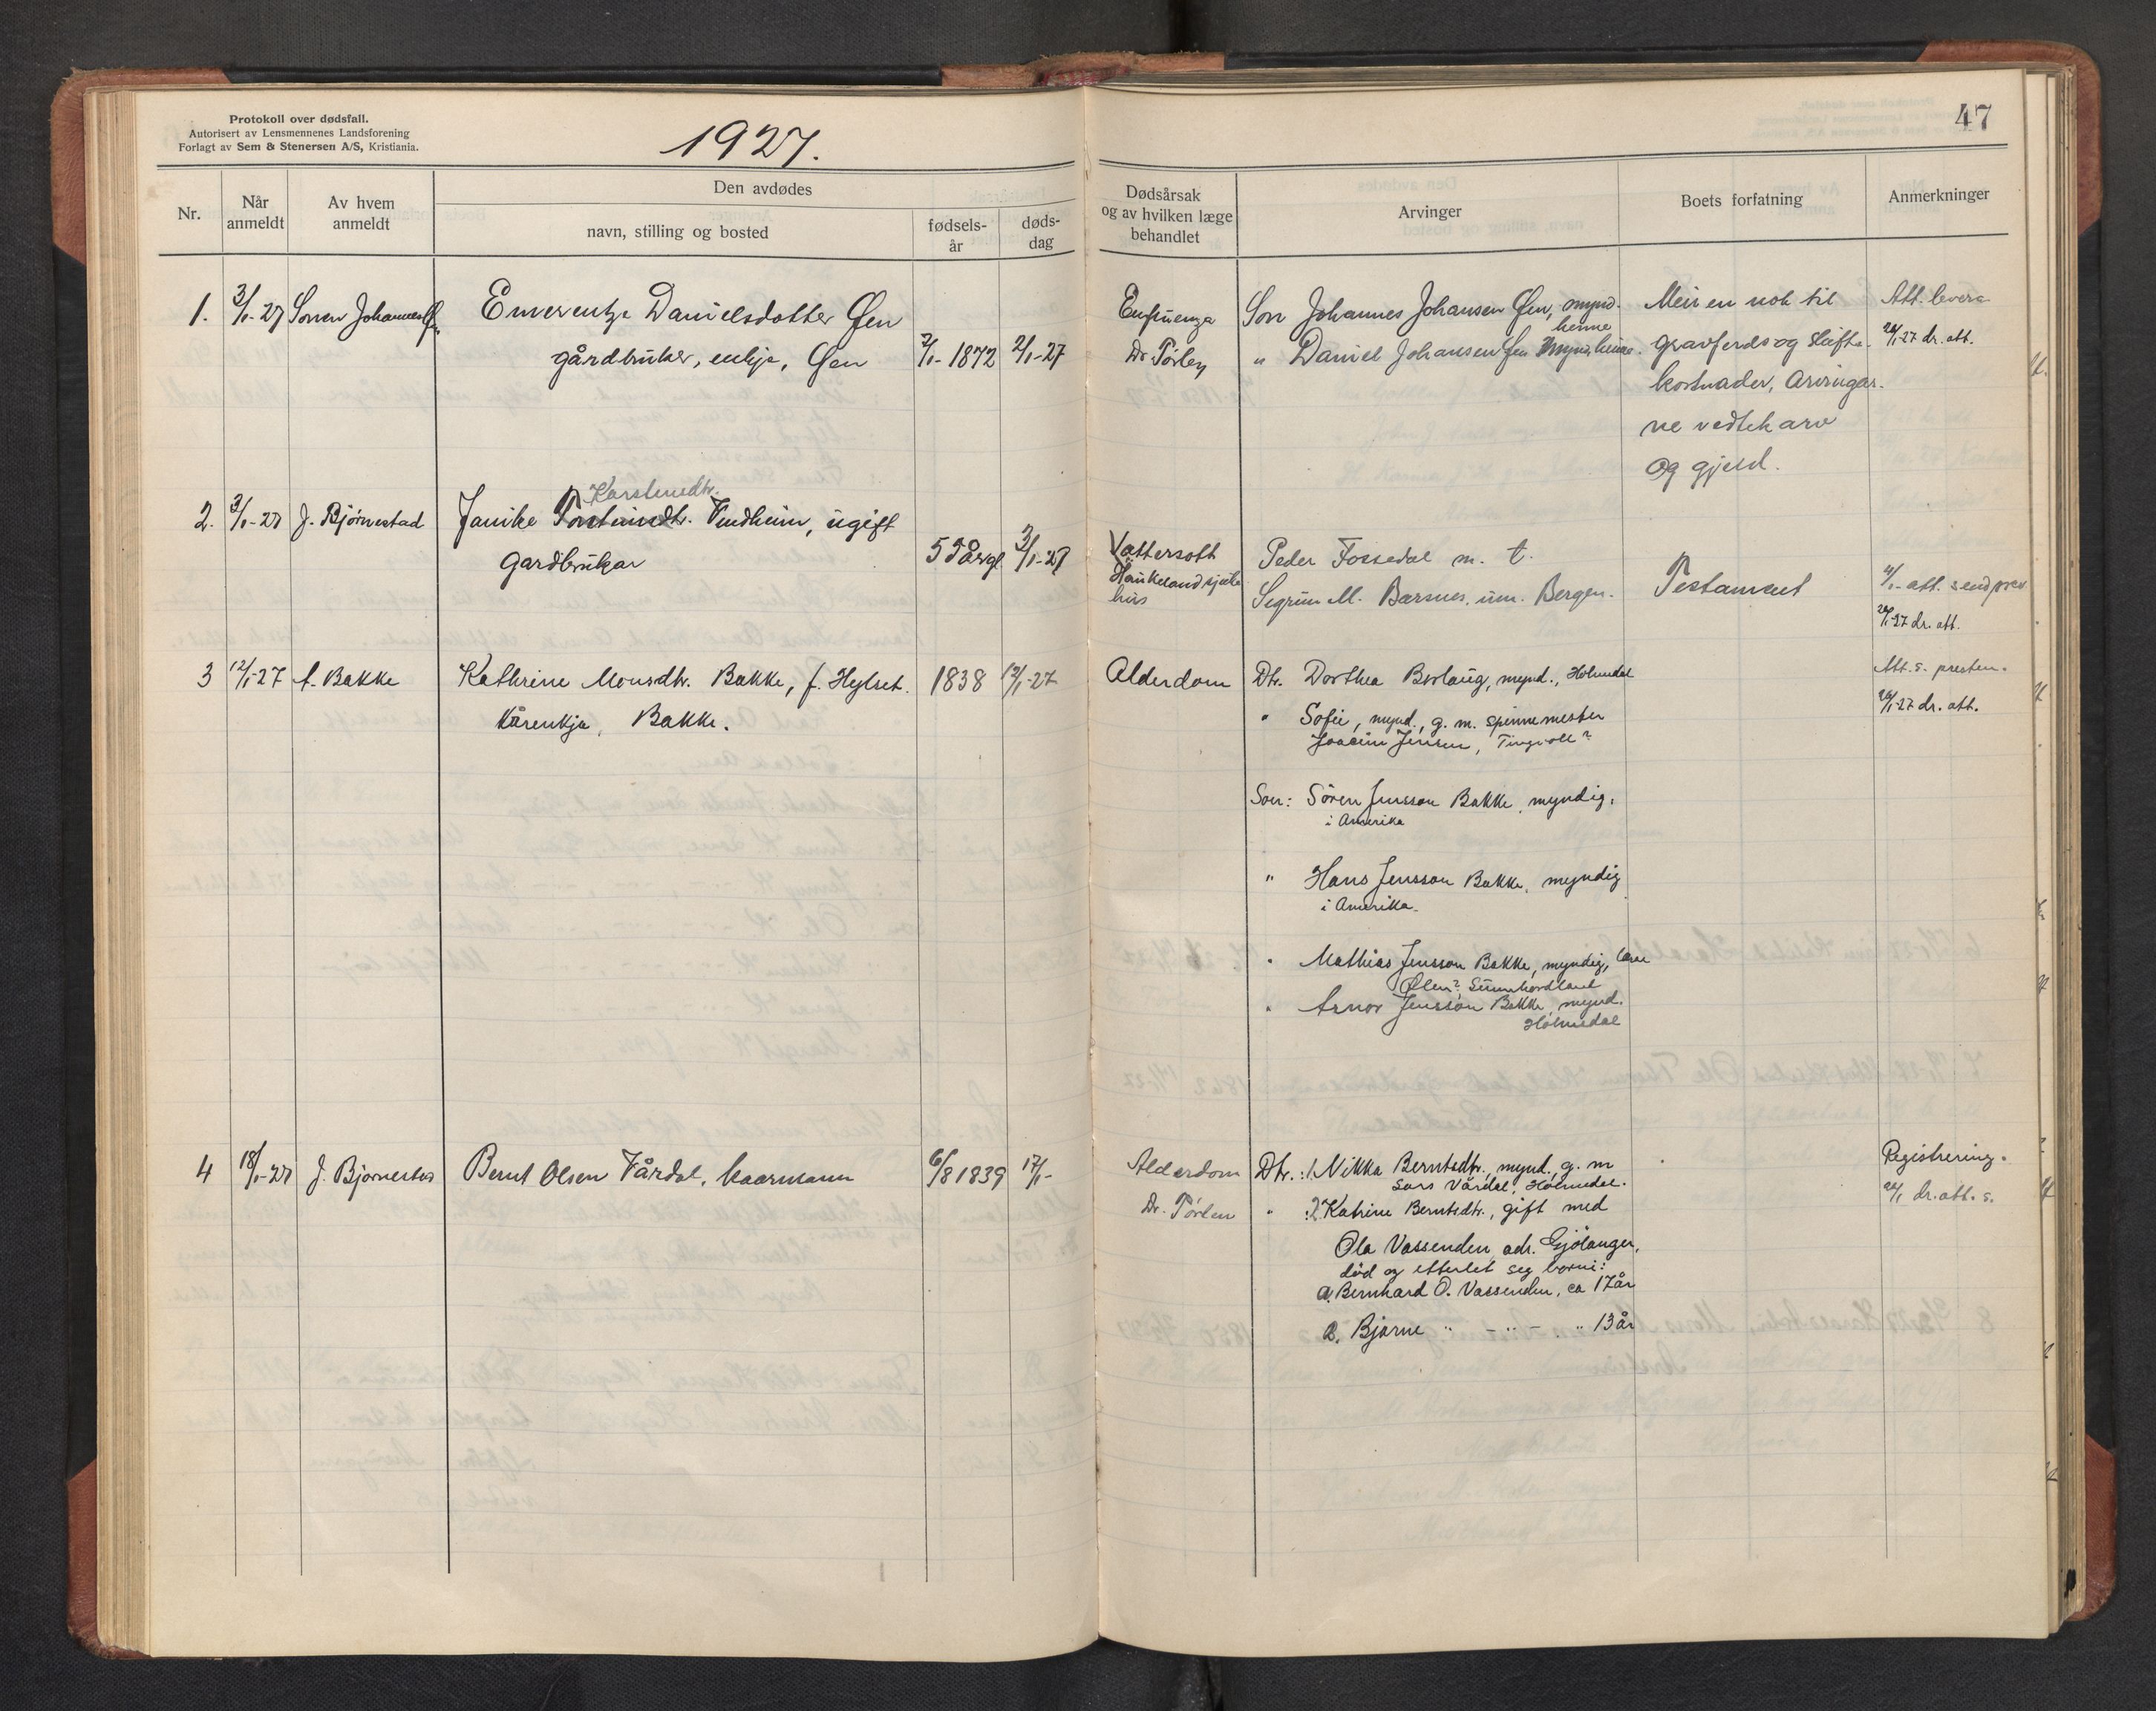 Protokoll over dødsfall.
Autorisert av Lensmennenes Landsforening
Forlagt av Sem & Stenersen A/S, Kristiania.
1927.
47
Nr.
Når anmeldt
Av hvem anmeldt
Den avdødes
navn, stilling og bosted
fødsels-år
døds-dag
Dødsårsak og av hvilken læge behandlet
Arvinger
Boets forfatning
Anmerkninger
1. 3/1-27 Sonen Johannes
Emerentze Danielsdotter Øen
gårdbruker, enkje, Øen
2/1-1872 2/1-27
Dr. Tørlen
Son Johannes Johansen Øen, mynd.
heime
" Daniel Johansen Øen mynd, heime.
Meir en nok til
gravferds og skifte-
kostnader, Arvingar-
ne vedtek arv
og gjeld.
Att. levera
24/1-27 dr. att.
2. 3/1-27 J. Bjørnestad
Karstensdtr.
Janike Vindheim, ugift
gardbrukar
57 årgl 3/1-27
Vattersott
Haukeland sjuke
hus
Peder Fossedal m. t.
Sigrun M. Barsnes, um. Bergen.
Testament
4/1- att. send prest
24/1-27 dr. att.
3 12/1-27 A. Bakke
Kathrine Monsdtr. Bakke, f. Hylset.
Kårenkja, Bakke.
1838 12/1-27
Alderdom
Dtr. Dorthea Borlaug, mynd., Holmedal
" Sofie, mynd., g. m. spinnemester
Joacim Jensen, Tingvoll?
Son: Sören Jensson Bakke, myndig,
i Amerika
" Hans Jensson Bakke, myndig
i Amerika.
" Mathias Jensson Bakke, myndig,
Ølen? Sunnhordland
" Arnor Jensson Bakke, mynd.
Holmedal
Att. s. presten.
24/1-27 dr. att.
4 18/1-27 J. Bjørnestad
Bernt Olsen Vårdal, kaarmann
6/8 1839 17/1-
Alderdom
Dr. Tørlen
Dtr.: 1. Nikka Berntsdtr., mynd., g. m
Lars Vårdal, Holmedal.
" :2. Katrine Berntsdtr., gift med
Ola Vassenden, adr. Gjölanger,
död og etterlet seg borni:
a. Bernhard O. Vassenden, ca 17 år
b. Bjarne " - " - " 13 år
Registrering.
24/1 dr. att. s.